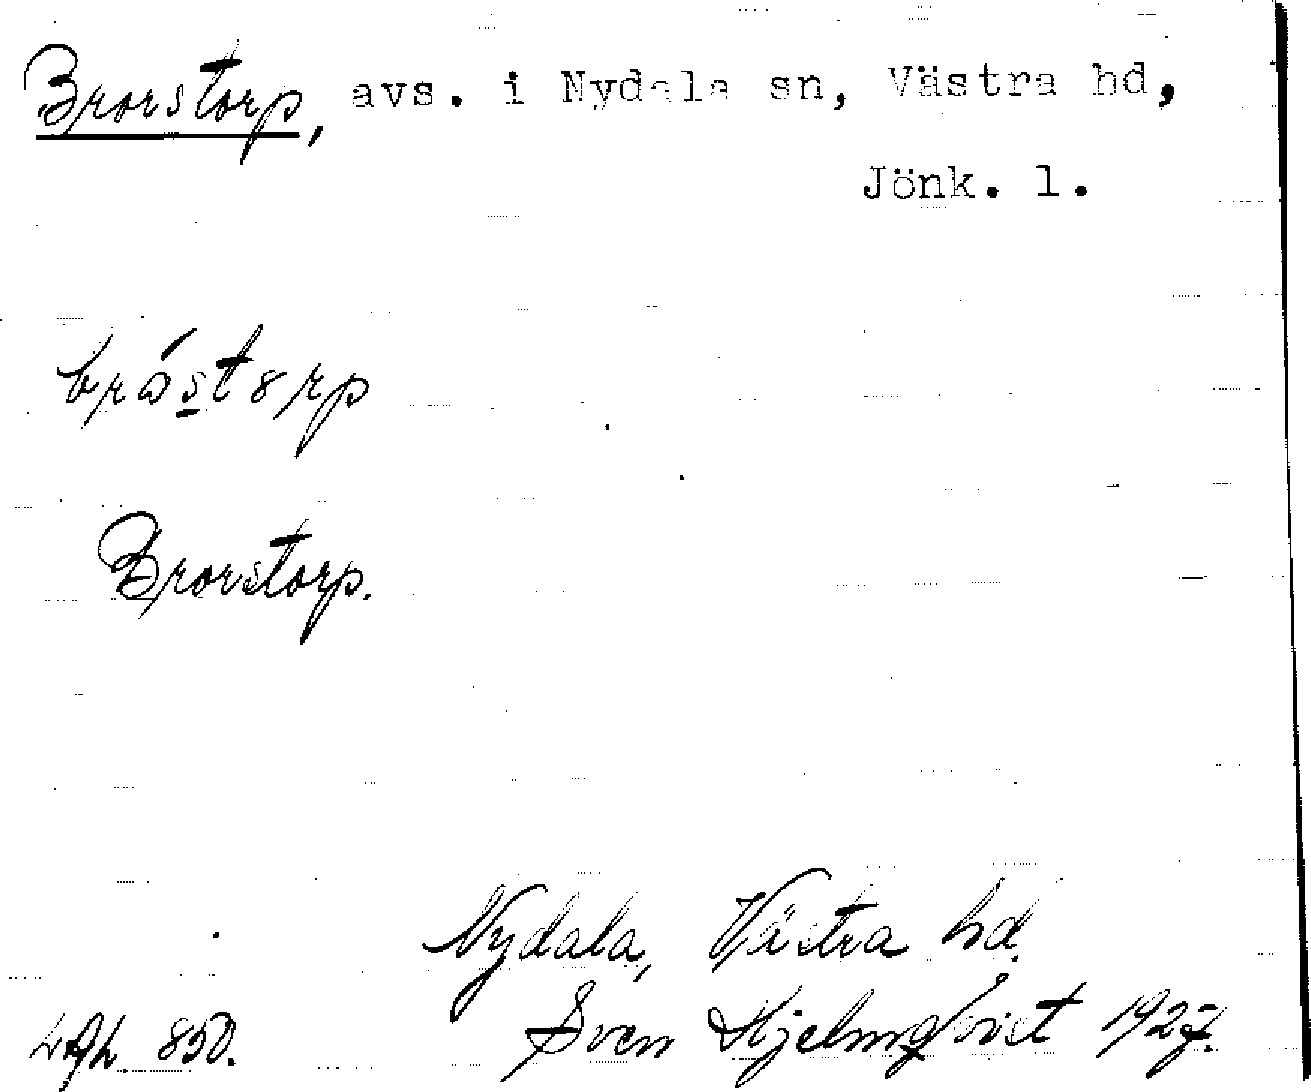 Brorstorp, avs. i Nydala sn, Västra hd,
Jönk. l.
Brorstorp.
Nydala, Västra hd.
850. Sven Hjelmqvist 1927.